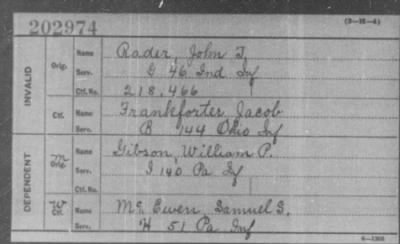 202974
(3-16-4)
INVALID
Orig.
Name Rader, John T.
Serv. G 46 Ind. Inf
Ctf. No. 218,466
Ctf.
Name Frankforter, Jacob
Serv. B 144 Ohio Inf
DEPENDENT
Orig.
Name Gibson, William P.
Serv. I 140 Pa Inf
Ctf. No.
Ctf.
Name Mc Ewen, Samuel S.
Serv. H 51 Pa Inf